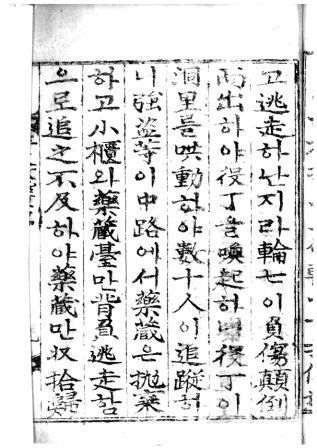 고逃走하난지라輪七이負傷顚倒
而出하야役丁을喚起하役丁이
洞里를哄動하야數十人이追蹤하
니強盜等이中路에서藥藏은抛棄
하고小櫃와藥藏臺만背負逃走함
으로追之不及하야藥藏만収拾歸